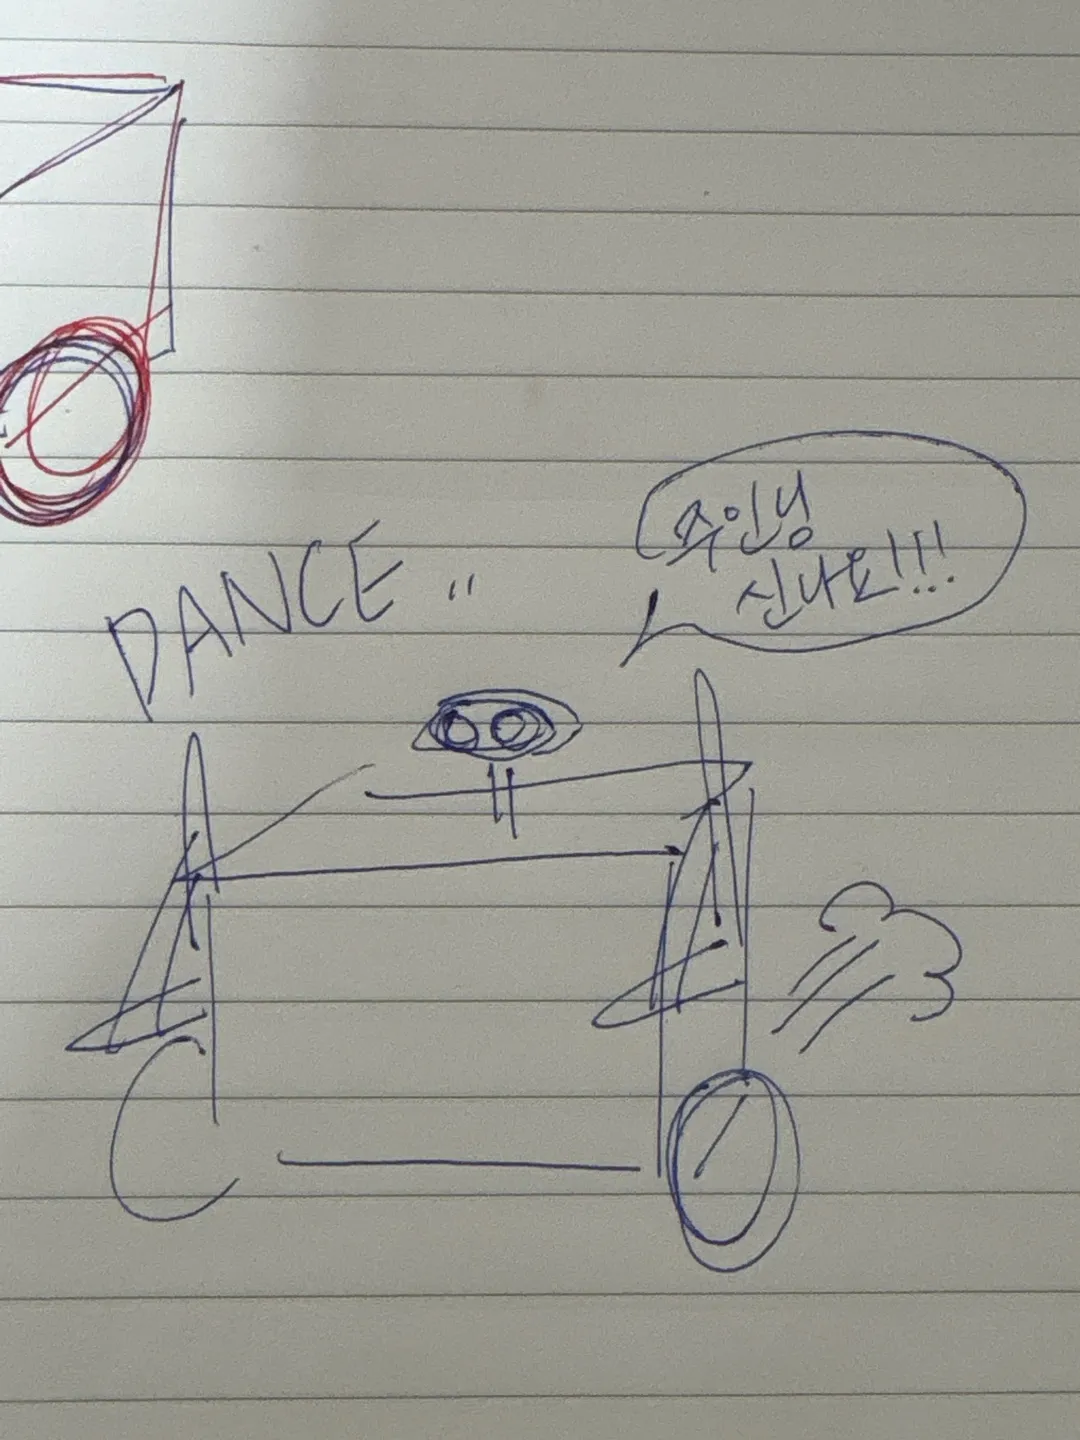 DANCE "
주인님
신나요!!!